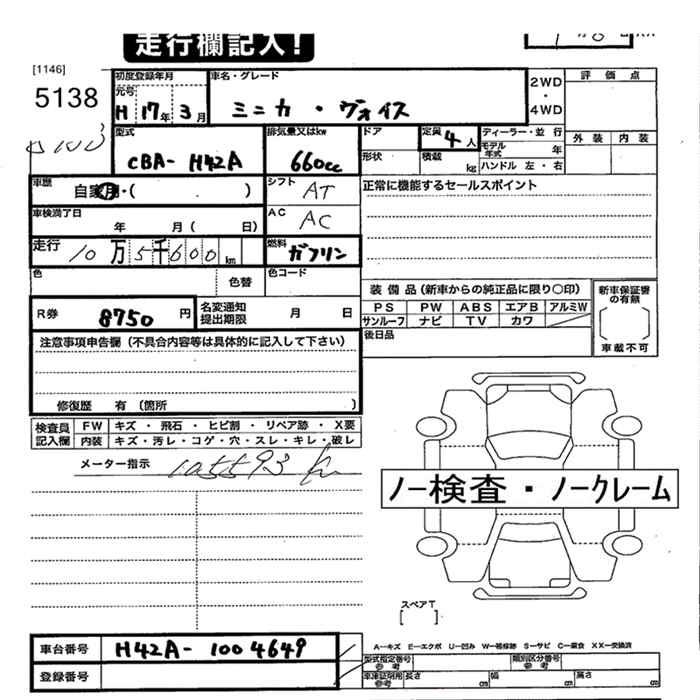 走行欄記入!
[1146]
5138
初度登録年月
元号
H 17年 3月
車名・グレード
ミニカ・ヴォイス
2WD
・
4WD
評価点
外装 内装
型式
CBA-H42A
排気量又はkw
660cc
ドア
形状
定員 4人
積載 kg
ディーラー・並行
モデル年式 年
ハンドル 左・右
車歴
自家用・( )
シフト AT
正常に機能するセールスポイント
車検満了日
年 月( 日)
AC AC
走行 10万5千600km
燃料 ガソリン
色 色替
色コード
装備品(新車からの純正品に限り○印)
PS PW ABS エアB アルミW
サンルーフ ナビ TV カワ
新車保証書の有無
車載不可
R券 8750円
名変通知提出期限 月 日
後日品
注意事項申告欄(不具合内容等は具体的に記入して下さい)
修復歴 有(箇所 )
検査員記入欄
FW キズ・飛石・ヒビ割・リペア跡・X要
内装 キズ・汚レ・コゲ・穴・スレ・キレ・破レ
メーター指示 105593km
ノー検査・ノークレーム
スペアT
[ ]
車台番号 H42A-1004649
登録番号
A-キズ E-エクボ U-凹み W-補修跡 S-サビ C-腐食 XX-交換済
型式指定番号 参考
類別区分番号 参考
車庫証明用 参考
長さ cm 幅 cm 高さ cm